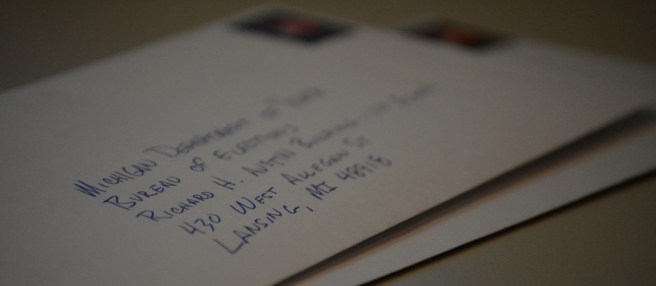 MICHIGAN DEPARTMENT OF STATE
BUREAU OF ELECTIONS
RICHARD H. AUSTIN BUILDING - 1ST FLOOR
430 WEST ALLEGAN ST
LANSING, MI 48918